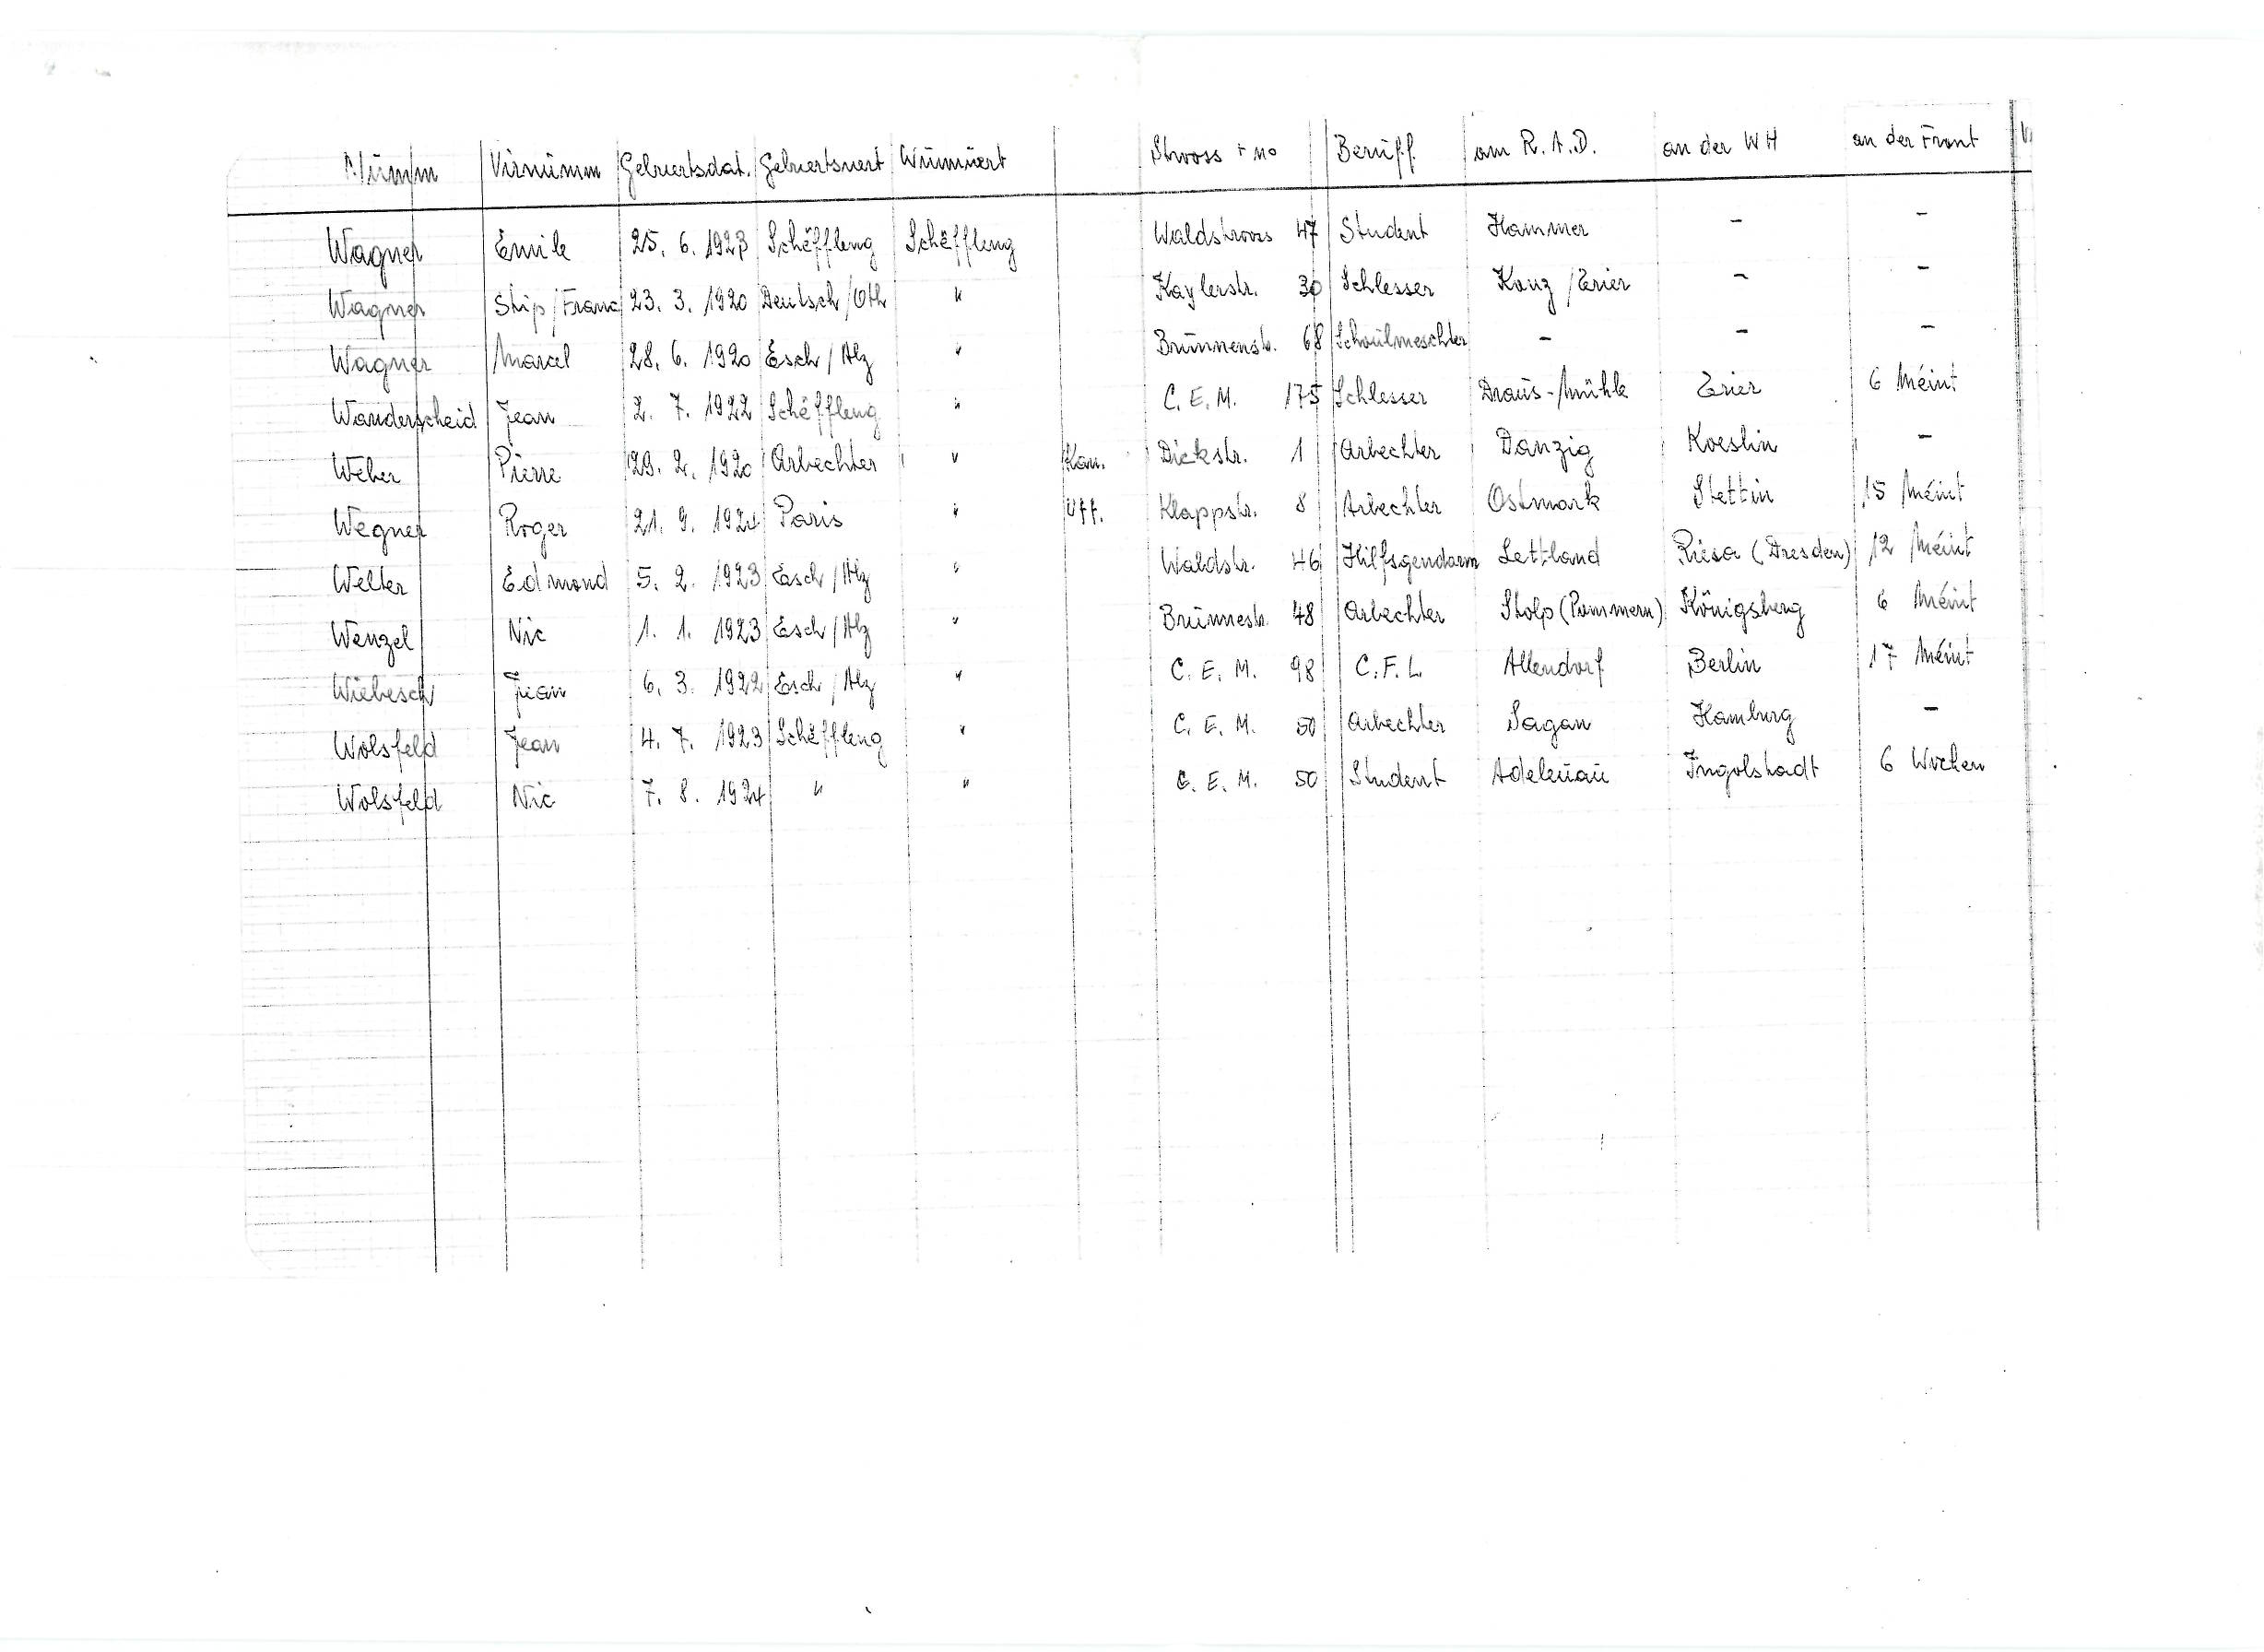 Nūmm Virnūmm Gebuertsdat. Gebuertsuert Wūnnūert Strooss + no Berūff am R.A.D. an der WH an der Front
Wagner Emile 25. 6. 1923 Schëffleng Schëffleng Waldstrooss 47 Student Hammer - -
Wagner Stip/Franc 23. 3. 1920 Deutsch/Oth " Kaylerstr. 30 Schlesser Konz/Trier - -
Wagner Marcel 28. 6. 1920 Esch/Alz " Brūnnenstr. 68 Schoūlmeschter - - -
Wanderscheid Jean 2. 7. 1922 Schëffleng " C.E.M. 175 Schlesser Draūs-Mühle Trier 6 Méint
Weber Pierre 29. 2. 1920 Arbechter " Kan. Dickstr. 1 Arbechter Danzig Koeslin -
Wegner Roger 21. 9. 1921 Paris " Uff. Klappstr. 8 Arbechter Ostmark Stettin 15 Méint
Welter Edmond 5. 2. 1923 Esch/Alz " Waldstr. 46 Hilfsgendarm Lettland Riesa (Dresden) 12 Méint
Wenzel Nic 1. 1. 1923 Esch/Alz " Brūnnestr. 48 Arbechter Stolp (Pommern) Königsberg 6 Méint
Wiebesch Jean 6. 3. 1922 Esch/Alz " C.E.M. 98 C.F.L Allendorf Berlin 17 Méint
Wolsfeld Jean 4. 7. 1923 Schëffleng " C.E.M. 50 Arbechter Sagan Hamburg -
Wolsfeld Nic 7. 8. 1924 " " C.E.M. 50 Student Adelnaū Ingolstadt 6 Wochen